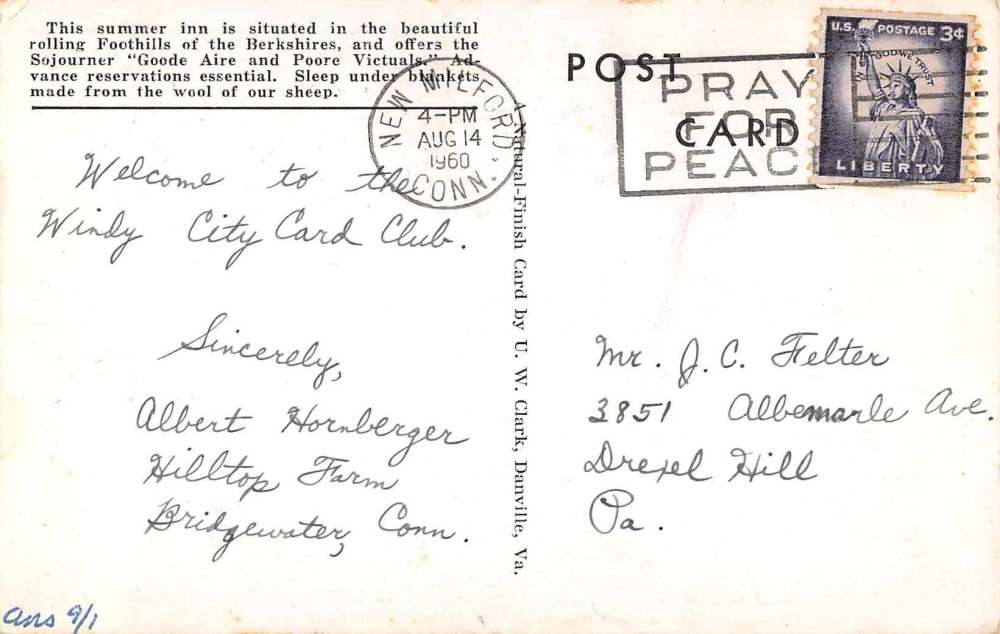 This summer inn is situated in the beautiful
rolling Foothills of the Berkshires, and offers the
Sojourner "Goode Aire and Poore Victuals." Ad-
vance reservations essential. Sleep under blankets
made from the wool of our sheep.
NEW MILFORD
4-PM
AUG 14
1960
CONN.
Welcome to the
Windy City Card Club.
Sincerely,
Albert Hornberger
Hilltop Farm
Bridgewater, Conn.
ans 9/1
A Natural-Finish Card by U. W. Clark, Danville, Va.
POST
CARD
PRAY
FOR
PEACE
U.S. POSTAGE 3¢
IN GOD WE TRUST
LIBERTY
Mr. J. C. Felter
3851 Albemarle Ave.
Drexel Hill
Pa.